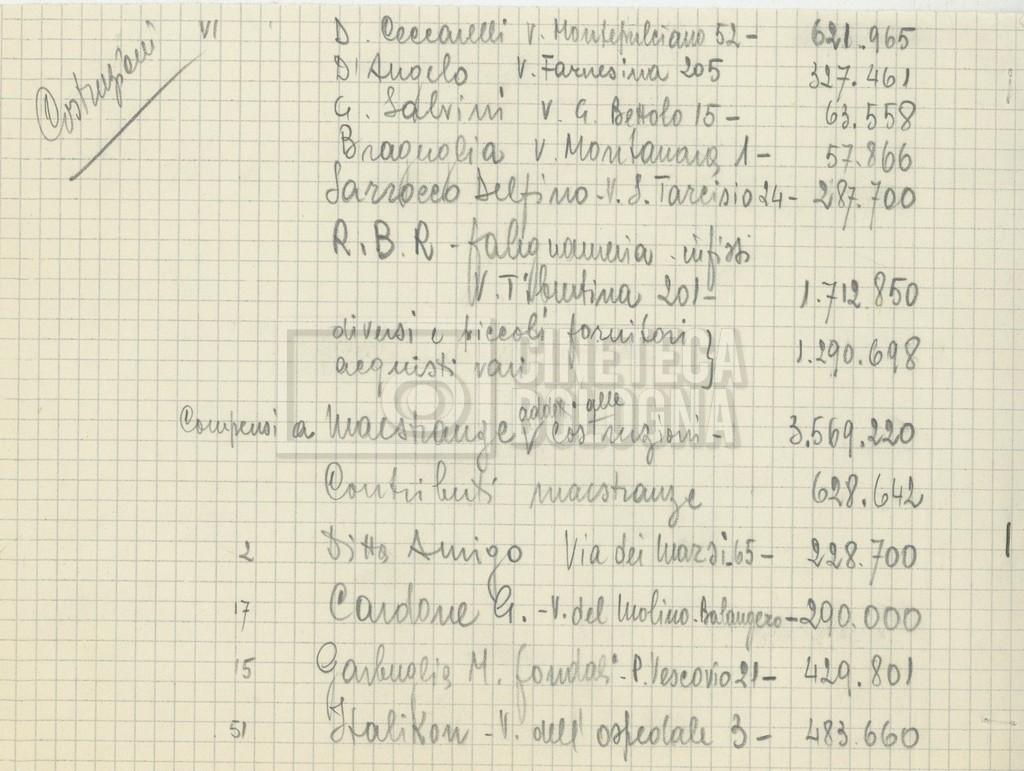 Costruzioni
VI D. Ceccarelli V. Montepulciano 52 - 621.965
D'Angelo V. Farnesina 205 327.461
G. Salvini V. G. Bettolo 15 - 63.558
Bragaglia V. Montanara 1 - 57.866
Sarrocco Delfino - V. S. Tarcisio 24 - 287.700
R.B.R - falegnameria - infissi
V. Tiburtina 201 - 1.712.850
diversi e piccoli fornitori
acquisti vari } 1.290.698
CINETECA
BOLOGNA
addetti alle
Compensi a Maestranze V costruzioni - 3.569.220
Contributi maestranze 628.642
2 Ditta Amigo Via dei Marsi 65 - 228.700
17 Cardone G. - V. del Molino - Balangero - 290.000
15 Garbuglia M. fondali - P. Vescovio 21 - 429.801
51 Italikon - V. dell'ospedale 3 - 483.660